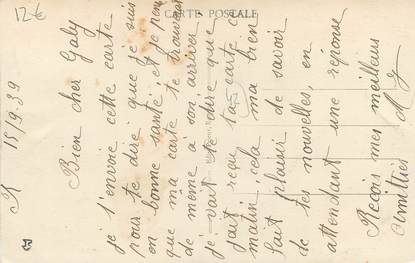 12€
CARTE POSTALE
K 15/9.39
Bien cher Galy
je t'envoie cette carte
pour te dire que je suis
en bonne santé et je
que ma carte te trouveras
de même à son arrivée
je vait te dire que
j'ait reçu ta carte ce
matin, cela ma bien
fait plaisir de savoir
de tes nouvelles, en
attendant une reponse
Reçois mes meilleurs
Amitiés